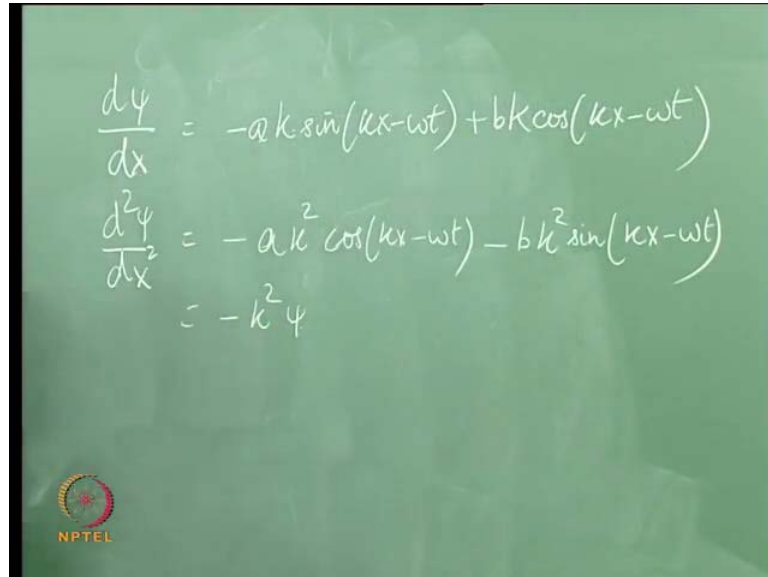 dψ/dx = -ak sin(kx-ωt) + bk cos(kx-ωt)
d²ψ/dx² = -ak² cos(kx-ωt) - bk² sin(kx-ωt)
= -k²ψ
NPTEL